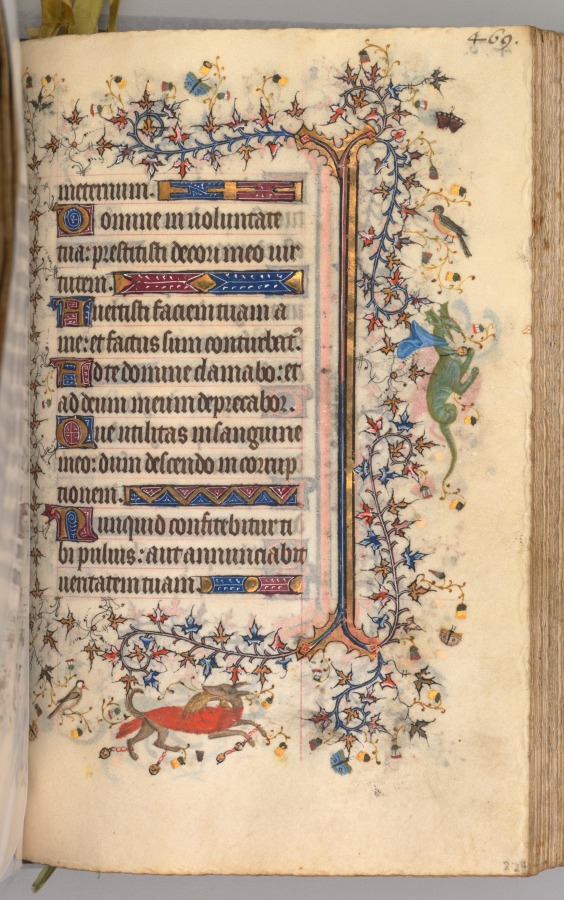 469.
ineternum.
Domine in uoluntate
tua: prestitisti decori meo uir
tutem.
Auertisti faciem tuam a
me: et factus sum conturbatꝰ.
Ad te domine clamabo: et
ad deum meum deprecabor.
Que utilitas in sanguine
meo: dum descendo in corrup
tionem.
Nunquid confitebitur ti
bi puluis: aut annunciabit
ueritatem tuam.